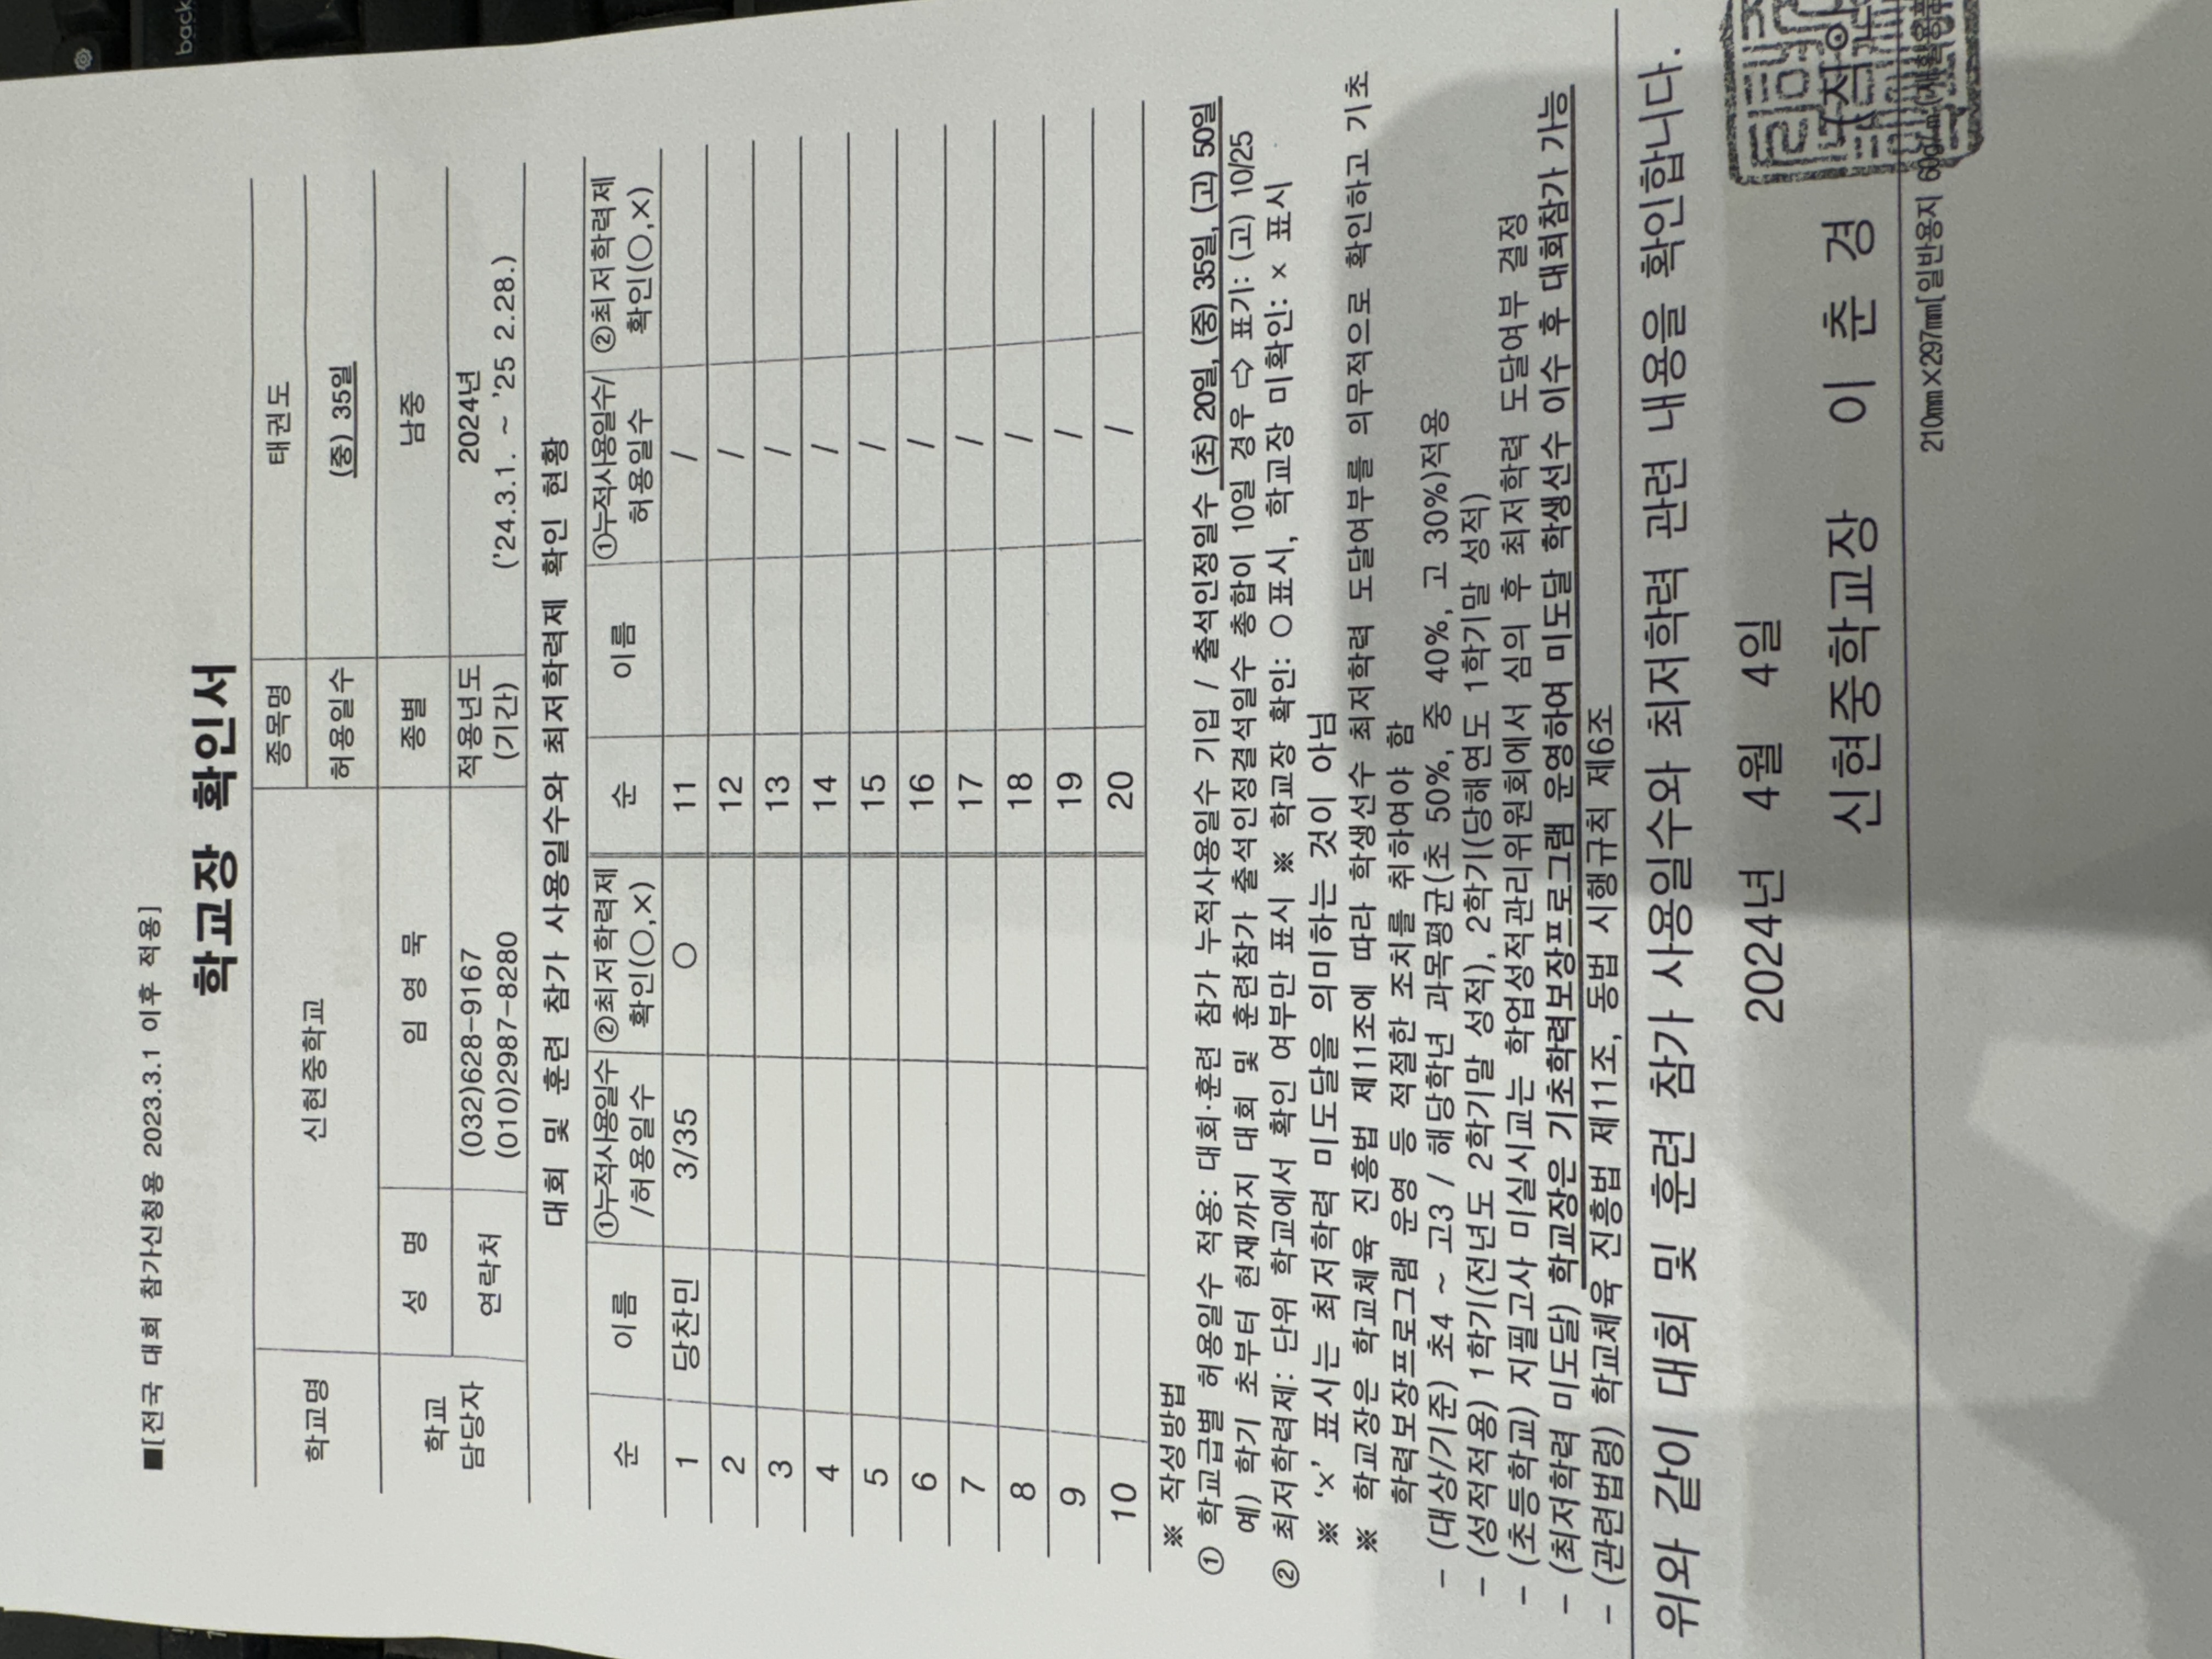 ■[전국 대회 참가신청용 2023.3.1 이후 적용]
학교장 확인서
학교명 신현중학교 종목명 태권도
허용일수 (중) 35일
학교 담당자 성 명 임 영 묵 종별 남중
연락처 (032)628-9167 (010)2987-8280 적용년도 (기간) 2024년 ('24.3.1. ~ '25 2.28.)
대회 및 훈련 참가 사용일수와 최저학력제 확인 현황
순 이름 ①누적사용일수 /허용일수 ②최저학력제 확인(○,×) 순 이름 ①누적사용일수/ 허용일수 ②최저학력제 확인(○,×)
1 당찬민 3/35 ○ 11 /
2 12 /
3 13 /
4 14 /
5 15 /
6 16 /
7 17 /
8 18 /
9 19 /
10 20 /
※ 작성방법
① 학교급별 허용일수 적용: 대회·훈련 참가 누적사용일수 기입 / 출석인정일수 (초) 20일, (중) 35일, (고) 50일
예) 학기 초부터 현재까지 대회 및 훈련참가 출석인정결석일수 총합이 10일 경우 ⇨ 표기: (고) 10/25
② 최저학력제: 단위 학교에서 확인 여부만 표시 ※ 학교장 확인: ○표시, 학교장 미확인: × 표시
※ '×' 표시는 최저학력 미도달을 의미하는 것이 아님
※ 학교장은 학교체육 진흥법 제11조에 따라 학생선수 최저학력 도달여부를 의무적으로 확인하고 기초
학력보장프로그램 운영 등 적절한 조치를 취하여야 함
- (대상/기준) 초4 ~ 고3 / 해당학년 과목평균(초 50%, 중 40%, 고 30%)적용
- (성적적용) 1학기(전년도 2학기말 성적), 2학기(당해연도 1학기말 성적)
- (초등학교) 지필고사 미실시교는 학업성적관리위원회에서 심의 후 최저학력 도달여부 결정
- (최저학력 미도달) 학교장은 기초학력보장프로그램 운영하여 미도달 학생선수 이수 후 대회참가 가능
- (관련법령) 학교체육 진흥법 제11조, 동법 시행규칙 제6조
위와 같이 대회 및 훈련 참가 사용일수와 최저학력 관련 내용을 확인합니다.
2024년 4월 4일
신현중학교장 이 춘 경
210㎜×297㎜[일반용지
back